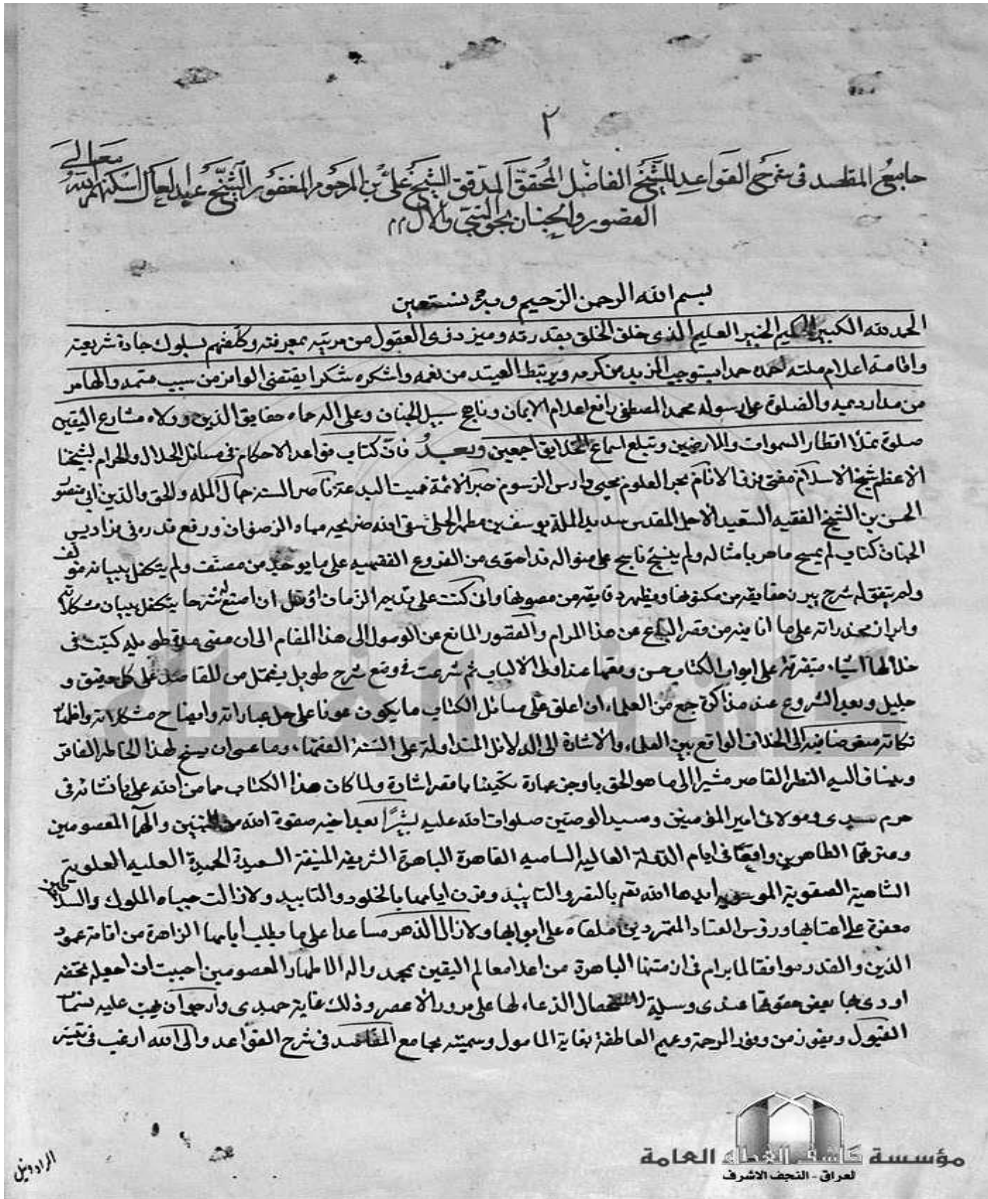 ٢
جامع المقاصد في شرح القواعد للشيخ الفاضل المحقق المدقق الشيخ علي بن المرحوم المغفور الشيخ عبد العال اسكنه الله تعالى
القصور والجنان بحق النبي والال
بسم الله الرحمن الرحيم وبه نستعين
الحمد لله الكبير الحكيم الخبير العليم الذي خلق الخلق بقدرته وميز ذوي العقول من مرتبته بمعرفته وكلفهم بسلوك جادة شريعته
واقامة اعلام ملته احمده حمدا يستوجب المزيد من كرمه ويرتبط العتيد من نعمه واشكره شكرا يقتضي الوافر من سيب متمه والهامر
من مدار ديمه والصلوة على رسوله محمد المصطفى رافع اعلام الايمان وناهج سبيل الجنان وعلى اله حماه حقايق الدين وولاه مشارع اليقين
صلوة تملأ اقطار السموات والارضين وتبلغ اسماع الخلايق اجمعين وبعد فان كتاب قواعد الاحكام في مسائل الحلال والحرام لشيخنا
الاعظم شيخ الاسلام مفتي فرق الانام بحر العلوم محيي دارس الرسوم حبر الائمة مميت البدعة ناصر السنة جمال الملة والحق والدين ابي منصور
الحسن بن الشيخ الفقيه السعيد الاجل المقدس سديد الملة يوسف بن مطهر الحلي سقى الله ضريحه مياه الرضوان ورفع قدره في فراديس
الجنان كتاب لم يسمح ماهر بامثاله ولم ينسج ناسج على منواله قد احتوى من الفروع الفقهية على ما يوجد من مصنف ولم يتكفل ببيانه مؤلف
ولم يتفق له شرح يبرز حقايقه من مكنونها ويظهر دقايقه من مصونها واني كنت على تقدير الزمان اؤمل ان اصنع شرحا يتكفل ببيان مشكلاته
وابراز مخدراته على ما انا فيه من قصر الباع عن هذا المرام والقصور المانع عن الوصول الى هذا المقام الى ان مضى مدة طويله كتبت في
خلالها اشياء متفرقة على ابواب الكتاب حسن وقعها عند اولي الالباب ثم شرعت في وضع شرح طويل يشتمل من المقاصد على كل دقيق و
جليل وبعد الشروع عند مذاكرة جمع من العلماء ان اعلق على مسائل الكتاب ما يكون عونا على حل عباراته وايضاح مشكلاته واظهار
نكاته متعرضا فيه الى الخلاف الواقع بين العلماء والاشارة الى الدلائل المتداولة على السنة الفقهاء وما عسى ان يسنح لهذا الخاطر الفاتر
وينساق اليه النظر القاصر مشيرا الى ما هو الحق باوجز عبارة مكتفيا باقصر اشارة ولما كان هذا الكتاب مما من الله علي بانشائه في
حرم سيدي ومولاي امير المؤمنين وسيد الوصيين صلوات الله عليه بعد اخيه صفوة الله من النبيين والهما المعصومين
وعترتهما الطاهرين واقعا في ايام الدولة العالية السامية القاهرة الباهرة الشريفة المنيفة السعيدة الحميدة العلية العلوية
الشاهية الصفوية الموسوية ايدها الله تعالى بالنصر والتاييد وقرن ايامها بالخلود والتابيد ولا زالت جباه الملوك والسلاطين
معفرة على اعتابها ورؤس العتاد المتمردين ملقاه على ابوابها ولا زال الدهر مساعدا على ما يطلب ايامها الزاهرة من اقامة عمود
الدين والقدر موافقا لما يرام في ازمنتها الباهرة من اعلا معالم اليقين بمحمد واله الاطهار المعصومين احببت ان اجعله تحفة
اؤدي بها بعض حقوقها عندي وسيلة لاستحصال الدعاء لها على مرور الاعصر وذلك غاية جهدي وارجو ان تهب عليه نسمات
القبول ويفوز من وفور الرحمة وعميم العاطفة بغاية المامول وسميته بجامع المقاصد في شرح القواعد والى الله ارغب في تيسر
مؤسسة كاشف الغطاء العامة
العراق - النجف الاشرف